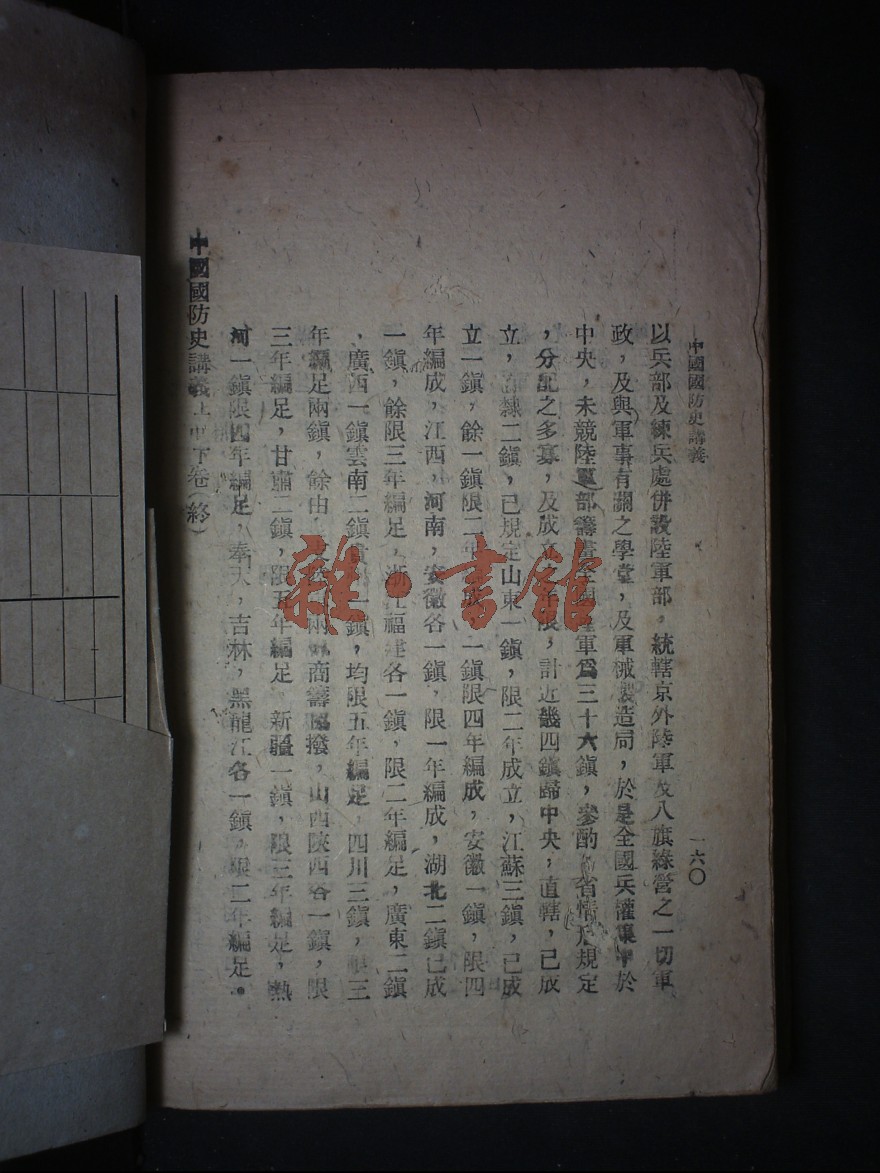 中國國防史講義
一六〇
以兵部及練兵處併設陸軍部，統轄京外陸軍及八旗綠營之一切軍
政，及與軍事有關之學堂，及軍械製造局，於是全國兵權集中於
中央，未競陸軍部籌畫全國陸軍爲三十六鎮，參酌各省情形規定
，分配之多寡，及成立年限，計近畿四鎮歸中央，直轄，已成
立，直隸二鎮，已規定山東一鎮，限二年成立，江蘇三鎮，已成
立一鎮，餘一鎮限二年成，一鎮限四年編成，安徽一鎮，限四
年編成，江西，河南，安徽各一鎮，限一年編成，湖北二鎮已成
一鎮，餘限三年編足，浙江福建各一鎮，限二年編足，廣東二鎮
，廣西一鎮雲南二鎮貴州一鎮，均限五年編足，四川三鎮，限三
年編足兩鎮，餘由兩商籌協撥，山西陝西各一鎮，限
三年編足，甘肅二鎮，限五年編足，新疆一鎮，限三年編足，熱
河一鎮限四年編足，奉天，吉林，黑龍江各一鎮，限二年編足。
中國國防史講義上中下卷（終）
雜·書館